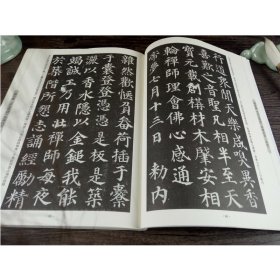 雖然歡愜負畚荷插于橐
于囊登登憑憑是板是築
灑以香水隱以金鎚我能
竭誠工乃用壯禪師每夜
於築階所懇志誦經勵精
行道衆聞天樂咸嗅異香
喜歎之音聖凡相半至天
寶元載創構材木肇安相
輪禪師理會佛心感通
帝夢七月十三日勅内